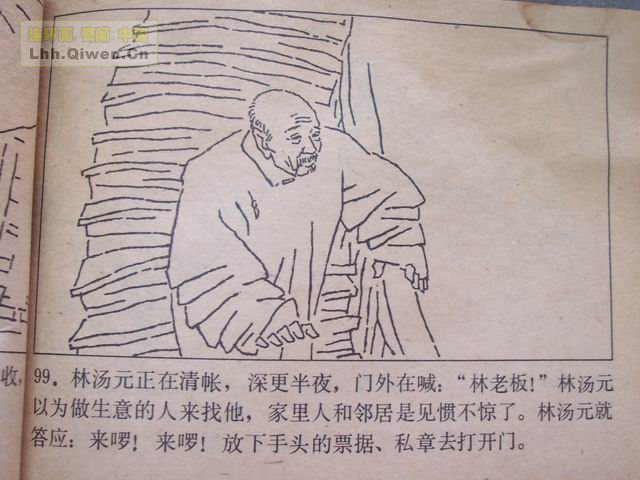 连环画.奇闻.中国
Lhh.Qiwen.Cn
收，
99．林汤元正在清帐，深更半夜，门外在喊：“林老板！”林汤元
以为做生意的人来找他，家里人和邻居是见惯不惊了。林汤元就
答应：来啰！来啰！放下手头的票据、私章去打开门。